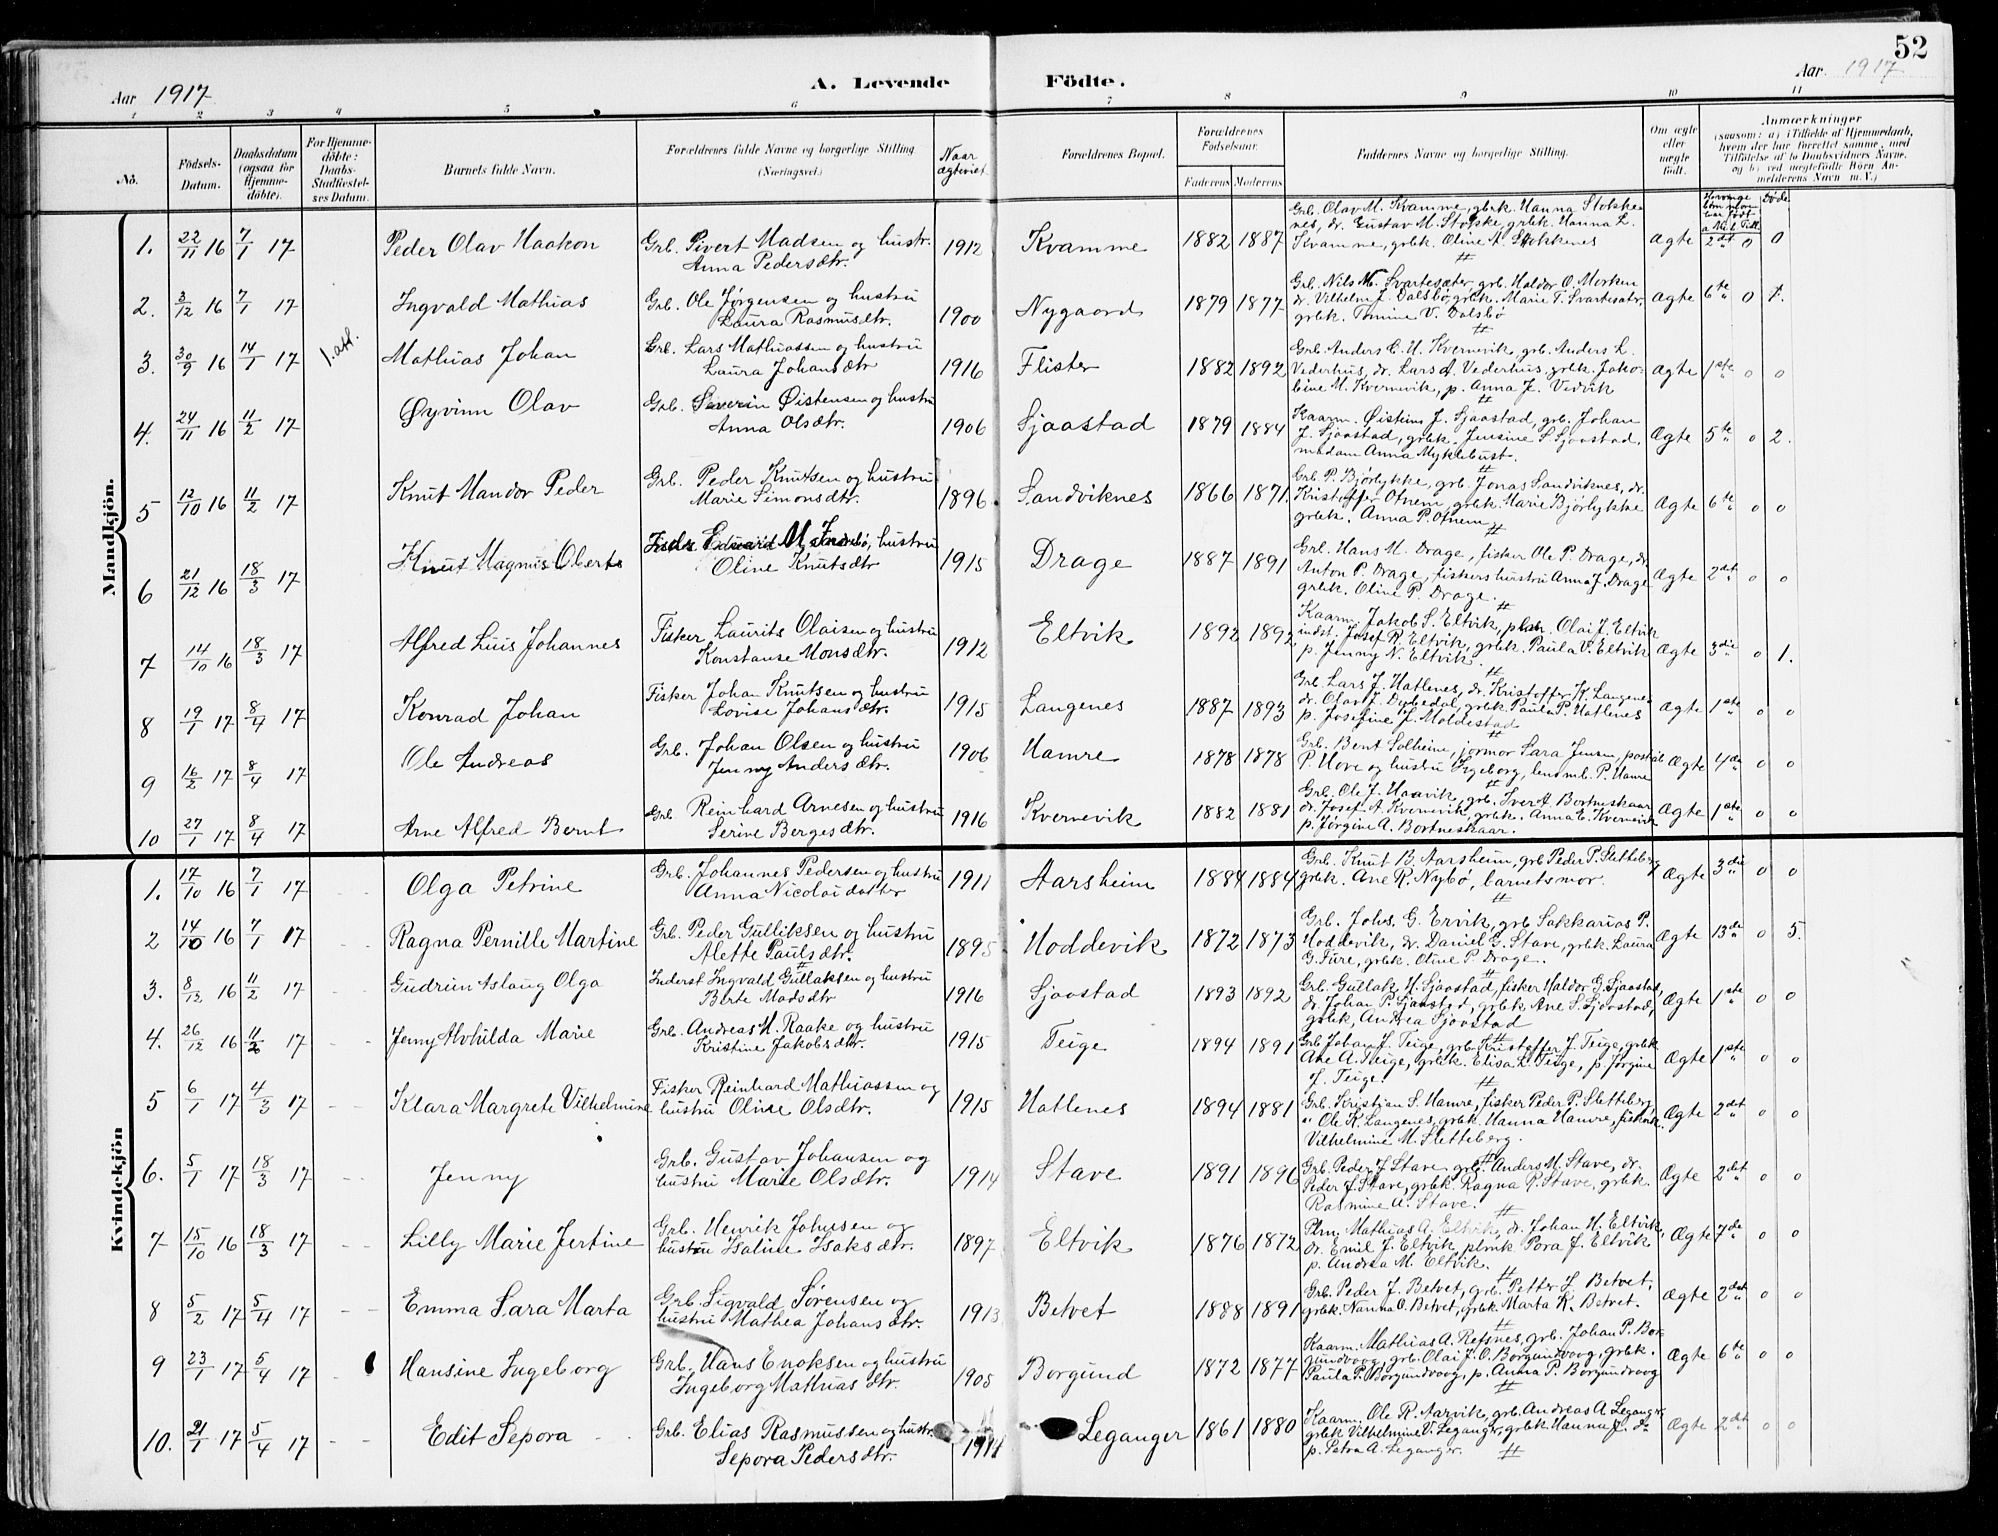 52
Aar 1917 A. Levende Födte. Aar 1917
1 2 3 4 5 6 7 8 9 10 11
No. Födsels-Datum. Daabsdatum (ogsaa for Hjemmedöbte). For Hjemmedöbte: Daabs-Stadfæstelses Datum. Barnets fulde Navn. Forældrenes fulde Navne og borgerlige Stilling (Næringsvei.) Naar ægteviet Forældrenes Bopæl. Forældrenes Födselsaar. Faderens Moderens Faddernes Navne og borgerlige Stilling. Om ægte eller uægte födt. Anmærkninger (saasom: a) i Tilfælde af Hjemmedaab, hvem der har forrettet samme, med Tilföielse af to Daabsvidners Navne, og b) ved uægtefödte Börn Anmelderens Navn m. V.) Døde
Mandkjön.
1. 22/11 16 7/1 17 Peder Olav Haakon Grb. Sivert Madsen og hustr. Anna Pedersdtr. 1912 Kvamme 1882 1887 Grb. Olav M. Kvamme, grbk. Hanna Stokkenes, dr. Gustav M. Stokke, grbk. Hanna L. Kvamme, grbk. Oline A. Stokkenes Ægte 2det 0 0
2. 3/12 16 7/1 17 Ingvald Mathias Grb. Ole Jørgensen og hustru Laura Rasmusdtr. 1900 Nygaard 1879 1877 Grb. Nils M. Svartesæter, grb. Haldor O. Morken dr. Vilhelm J. Dalsbø, grbk. Marie T. Svartesæter, grbk. Tomine V. Dalsbø Ægte 6te 0 1.
3. 30/9 16 14/1 17 1. att. Mathias Johan Grb. Lars Mathiassen og hustru Laura Johansdtr 1916 Flister 1882 1892 Grb. Anders C. H. Kvernevik, grb. Anders L. Vederhus, dr. Lars A. Vederhus, grbk. Jakobine M. Kvernevik, p. Anna J. Vedvik Ægte 1ste 0 0
4. 24/11 16 11/2 17 Øyvinn Olav Grb. Severin Øistensen og hustru Anna Olsdtr. 1906 Sjaastad 1879 1884 Kaarm. Øistein J. Sjaastad, grb. Johan J. Sjaastad, grbk. Jensine S. Sjaastad, madam Anna Myklebust. Ægte 5te 0 2.
5 12/10 16 11/2 17 Knut Mandor Peder Grb. Peder Knutsen og hustru Marie Simonsdtr. 1896 Sandviknes 1866 1871 Grb. P. Bjørlykke, grb. Jonas Sandviknes, dr. Kristoffer Otnem, grbk. Marie Bjørlykke grbk. Anna P. Otnem Ægte 6te 0 0
6 21/12 16 18/3 17 Knut Magnus Oberts hustru Oline Knutsdtr 1915 Drage 1887 1891 Grb. Hans M. Drage, fisker Ole P. Drage, dr. Anton P. Drage, fiskers hustru Anna J. Drage grbk. Oline P. Drage. Ægte 2det 0 0
7 14/10 16 18/3 17 Alfred Luis Johannes Fisker Laurits Olaisen og hustru Konstanse Monsdtr. 1912 Eltvik 1892 1892 Kaarm. Jakob S. Eltvik, Olai J. Eltvik indst. Josef R. Eltvik, grbk. Paula V. Eltvik p. Jenny N. Eltvik. Ægte 3die 0 1.
8 19/1 17 8/4 17 Konrad Johan Fisker Johan Knutsen og hustru Lovise Johansdtr. 1915 Langenes 1887 1893 Grb. Lars J. Hatlenes, dr. Kristoffer K. Langenes dr. Olav J. Dybedal, grbk. Paula P. Hatlenes p. Josefine J. Moldestad Ægte 1ste 0 0
9 16/2 17 8/4 17 Ole Andreas Grb. Johan Olsen og hustru Jenny Andersdtr. 1906 Hamre 1878 1878 Grb. Bent Solheim, jormor Sara Jensen, P. Hove og hustru Ingeborg, lensm.b. P. Hamre Ægte 4de 0 0
10 27/1 17 8/4 17 Arne Alfred Bernt Grb. Reinhard Arnesen og hustru Serine Bergesdtr. 1916 Kvernevik 1882 1881 Grb. Ole J. Haavik, grb. Iver A. Bortneskaar dr. Josef A. Kvernevik, grbk. Anna C. Kvernevik p. Jørgine A. Bortneskaar. Ægte 1ste 0 0
Kvindekjön
1. 17/10 16 7/1 17 Olga Petrine Grb. Johannes Pedersen og hustru Anna Nicolaidatter 1911 Aarsheim 1884 1884 Grb. Knut B. Aarsheim, grb Peder P. Sletteberg grbk. Ane R. Nybø, barnets mor. Ægte 3die 0 0
2 14/10 16 7/1 17 Ragna Pernille Martine Grb. Peder Gulliksen og hustru Alette Paulsdtr. 1895 Hoddevik 1872 1873 Grb. Johs. G. Ervik, grb Sakkarias P. Hoddevik, dr. Daniel G. Stave, grbk. Laura G. Fure, grbk. Oline P. Drage. Ægte 13de 0 5.
3. 8/12 16 11/2 17 Gudrun Aslaug Olga Inderst Ingvald Gullaksen og hustru Berte Madsdtr 1916 Sjaastad 1893 1892 Grb. Gullak H. Sjaastad, fisker Haldor G. Sjaastad, dr. Johan P. Sjaastad, grbk Ane S. Sjaastad, grbk, Andrea Sjaastad Ægte 1ste 0 0
4. 26/12 16 11/2 17 Jenny Alvhilda Marie Grb. Andreas H. Raake og hustru Kristine Jakobsdtr. 1915 Teige 1894 1891 Grb Johan J. Teige, grb Kristoffer J. Teige, grbk. Ane A. Teige, grbk. Elisa L. Teige, p. Jørgine J. Teige. Ægte 1ste 0 0
5 6/1 17 4/3 17 Klara Margrete Vilhelmine Fisker Reinhard Mathiassen og hustru Oline Olsdtr. 1915 Hatlenes 1894 1881 Grb. Kristian S. Hamre, fisker Peder P. Sletteberg, " Ole K. Langenes, grbk. Hanna Hamre, fiskerk. Vilhelmine M. Sletteberg. Ægte 2det 0 0
6. 5/1 17 18/3 17 Jenny Grb. Gustav Johansen og hustru Marie Olsdtr. 1914 Stave 1891 1896 Grb. Peder J. Stave grb. Anders M. Stave, dr. Peder J. Stave, grbk. Ragna R. Stave, grbk. Rasmine A. Stave. Ægte 2det 0 0
7 15/10 16 18/3 17 Lilly Marie Jertine Grb. Henrik Johnsen og hustru Isaline Isaksdtr. 1897 Eltvik 1876 1872 Plm. Mathias A. Eltvik, dr. Johan H. Eltvik, dr. Emil J. Eltvik, plmk Pora J. Eltvik p. Andrea M. Eltvik. Ægte 7de 0 0
8 5/2 17 5/4 17 Emma Sara Marta Grb. Sigvald Sørensen og hustru Mathea Johansdtr. 1913 Betvet 1888 1891 Grb. Peder J. Betvet, grb. Petter J. Betvet, grbk. Nanna O. Betvet, grbk. Marta K. Betvet. Ægte 2det 0 0
9 23/1 17 5/4 17 Hansine Ingeborg Grb. Hans Enoksen og hustru Ingeborg Mathiasdtr. 1905 Borgund 1872 1877 Kaarm. Mathias A. Refsnes, grb. Johan P. Borgundvaag, grb. Olai J. O. Borgundvaag, grbk. Paula P. Borgundvaag, p. Anna P. Borgundvaag Ægte 6te 0 0
10. 21/1 17 5/4 17 Edit Sepora Grb. Elias Rasmussen og hustr. Sepora Pedersdtr. 1911 Leganger 1861 1880 Kaarm. Ole R. Aarvik, grb. Andreas A. Leganger, grbk Vilhelmine V. Leganger, grbk. Hanna J. do p. Petra A. Leganger. Ægte 2det 0 0